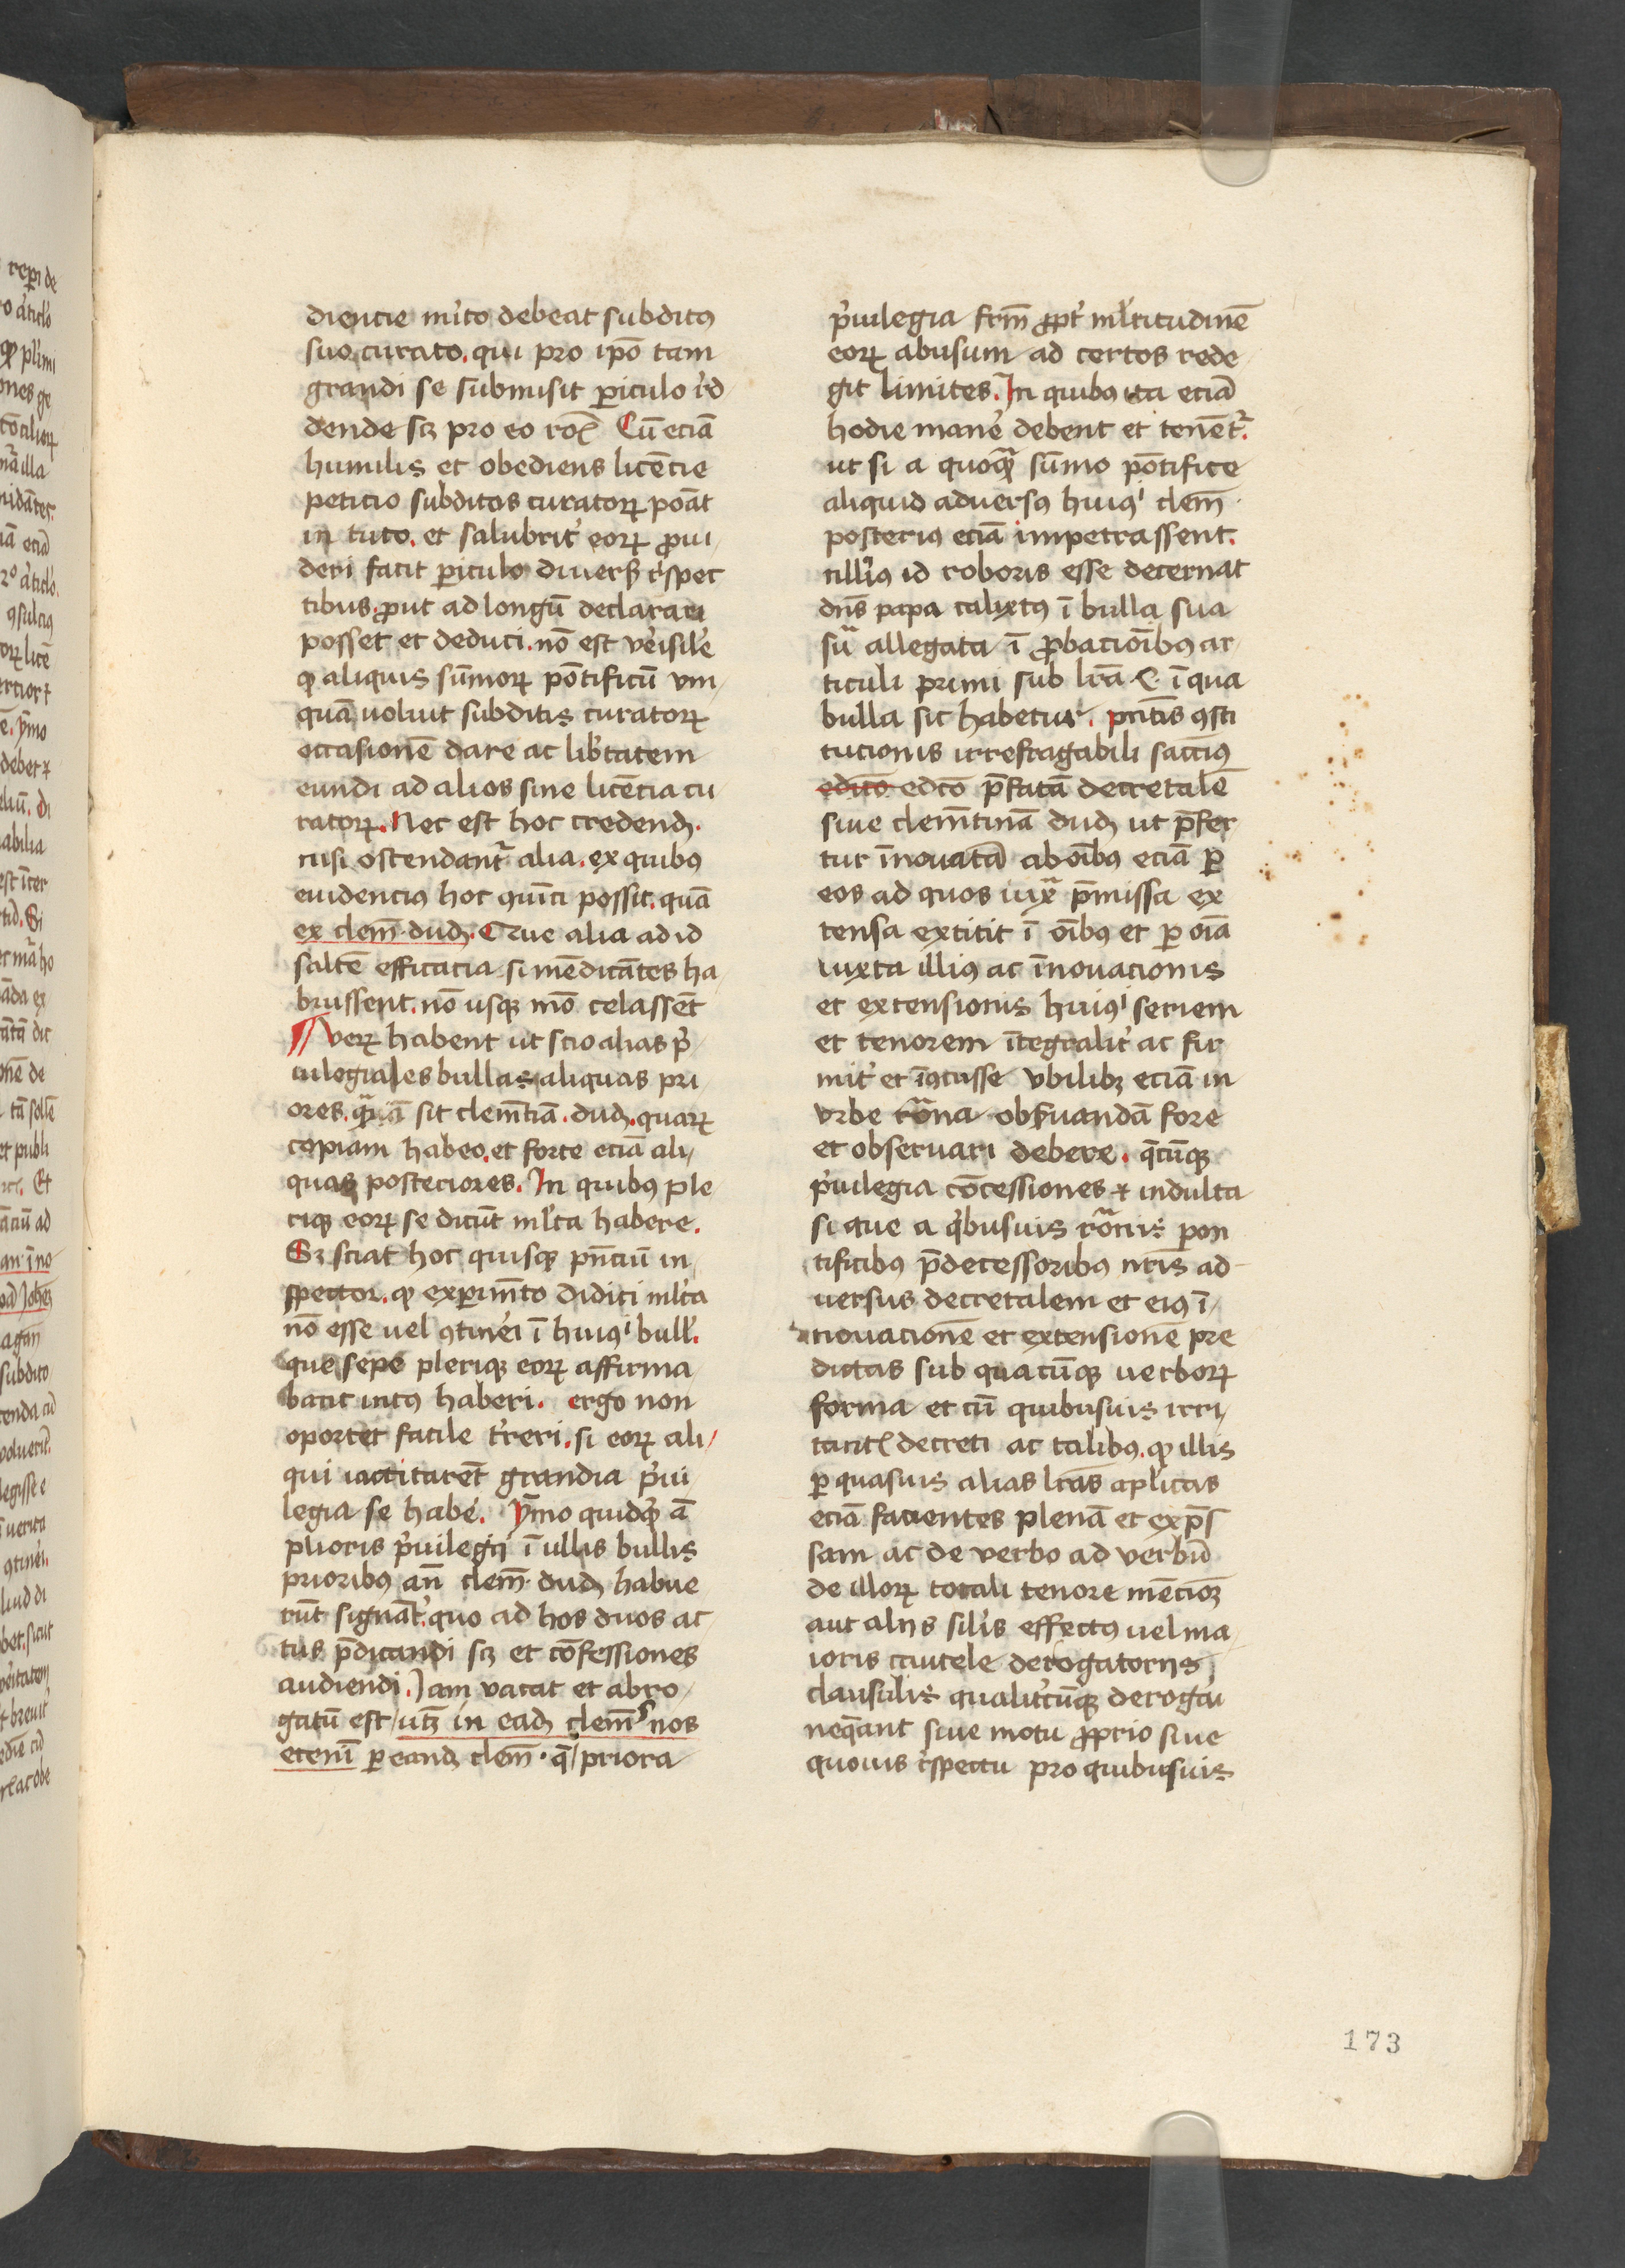 diencie mĩto debeat subditꝰ
suo curato. qui pro ipō tam
grandi se submisit ꝑiculo r̃d
dende scꝫ pro eo rōꝭ Cū eciā
humilis et obediens licēcie
peticio subditos curatoꝝ poāt
in tuto. et salubrit̛ eoꝝ ꝓui⸗
deri facit ꝑiculo diuersꝭ r̃spec
tibus. ꝓut ad longū declarari
posset et deduci. nō est ve̛isile̛
ꝙ aliquis sūmoꝝ pōtificū vm⸗
quā uoluit subditis curatoꝝ
occasionē dare ac lib̛tatem
eundi ad alios sine licēcia cu
ratoꝝ. Nec est hoc credendꝫ.
nisi ostendant᷑ alia. ex quibꝰ
euidenciꝰ hoc ꝯuīci possit. quā
ex clem̄. dudꝫ. Que alia ad id
saltē efficacia si mēdicātes ha
buissent. nō usqꝫ mō celassēt
¶ veꝝ habent ut scio alias p̛
uilegiales bullas aliquas pri
ores. qᷓꝫ sit clem̄tiā. dudꝫ. quaꝝ
copiam habeo. et forte eciā ali⸗
quas posteriores. In quibꝰ ple
riqꝫ eoꝝ se dicūt ml̛ta habere.
Sꝫ sciat hoc quisqꝫ pn̄ciū in⸗
spector. ꝙ exꝑim̄to didici ml̛ta
nō esse uel ꝯtine̛i ī huiꝰⁱ bull̛.
que sepe pleriqꝫ eoꝝ affirma
bant intꝰ haberi. ergo non
oportet facile t̛reri. si eoꝝ ali⸗
qui iactitarēt grandia p̛ui
legia se habe̛. ȳmo quidqͥd ā
plioris p̛uilegij ī ullis bullis
prioribꝰ an̄ clem̄. dudꝫ habue
rūt signāt̛. quo ad hos duos ac
tus p̄dicandi scꝫ et cōfessiones
audiendi. Jam vacat et abro⸗
gatū est/ utꝫ in eadꝫ clem̄ nos
etenī ꝑ eandꝫ clem̄. q̄/ priora
p̛uilegia frm̄ ꝓpt̛ ml̛titudinē
eoꝝ abusum ad certos rede⸗
git limites. In quibꝰ ita eciā
hodie mane̛ debent et tenēt᷑.
ut si a quoqᷓ sūmo pōtifice
aliquid aduersꝰ huiꝰⁱ clem̄.
posteriꝰ eciā impetrassent.
nulliꝰ id roboris esse decernat
dn̄s papa calixtꝰ ī bulla sua
suᷓ allegata ī ꝓbacioībꝰ ar
ticuli primi sub lr̄a C. ī qua
bulla sic habetur. pn̄tis ꝯsti
tucionis irrefragabili sanciꝰ
edicto edcō p̄fatā decretalē
siue clem̄tinā dudꝫ ut p̄fer
tur īnouatā ab oībꝰ eciā ꝑ
eos ad quos iuxᷓ p̄missa ex
tensa extitit ī oībꝰ et ꝑ oīa
iuxta illiꝰ ac īnouacionis
et extensionis huiꝰⁱ seriem
et tenorem ītegralit̛ ac fir
mit̛ et īꝯcusse vbilibꝫ eciā in
vrbe roᷓna obẜuandā fore
et obseruari debere. q̄cūqꝫ
p̛uilegia cōcessiones ⁊ indulta
si que a qͥbusuis roᷓnis pon
tificibꝰ p̄decessoribꝰ nr̄is ad
uersus decretalem et eiꝰ ī⸗
nouacionē et extensionē pre
dictas sub quacūqꝫ uerboꝝ
forma et cū quibusuis irri⸗
tantꝭ decreti ac talibꝰ. ꝙ illis
ꝑ quasuis alias lr̄as aplicas
eciā facientes plenā et exp̄s
sam ac de verbo ad verbū
de illoꝝ totali tenore mēcioꝫ
aut alijs sil̛is effectꝰ uel ma⸗
ioris cautele derogatorijs
clausulis qualit̛cūqꝫ derogari
neq̄ant siue motu ꝓprio siue
quouis r̃spectu pro quibusuis
173